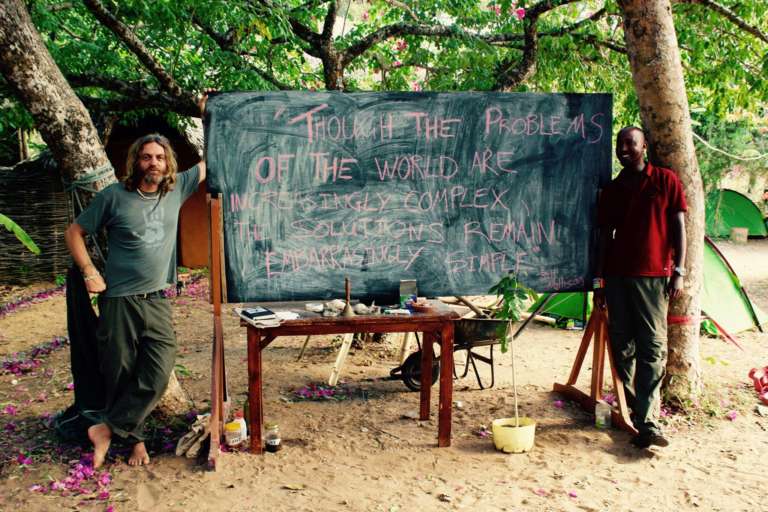 "THOUGH THE PROBLEMS
OF THE WORLD ARE
INCREASINGLY COMPLEX,
THE SOLUTIONS REMAIN
EMBARRASINGLY SIMPLE"